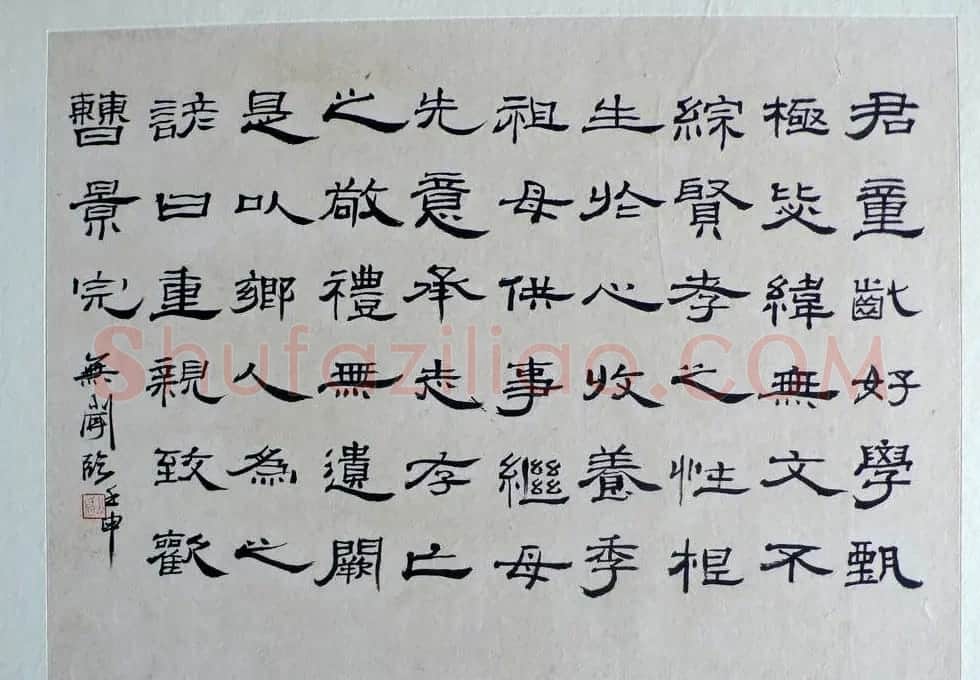 君童齔好學甄
極毖緯無文不
綜賢孝之性根
生於心收養季
祖母供事繼母
先意承志存亡
之敬禮無遺闕
是以鄉人為之
諺曰重親致歡
曹景完 無聞臨 壬申
Shufaziliao.COM